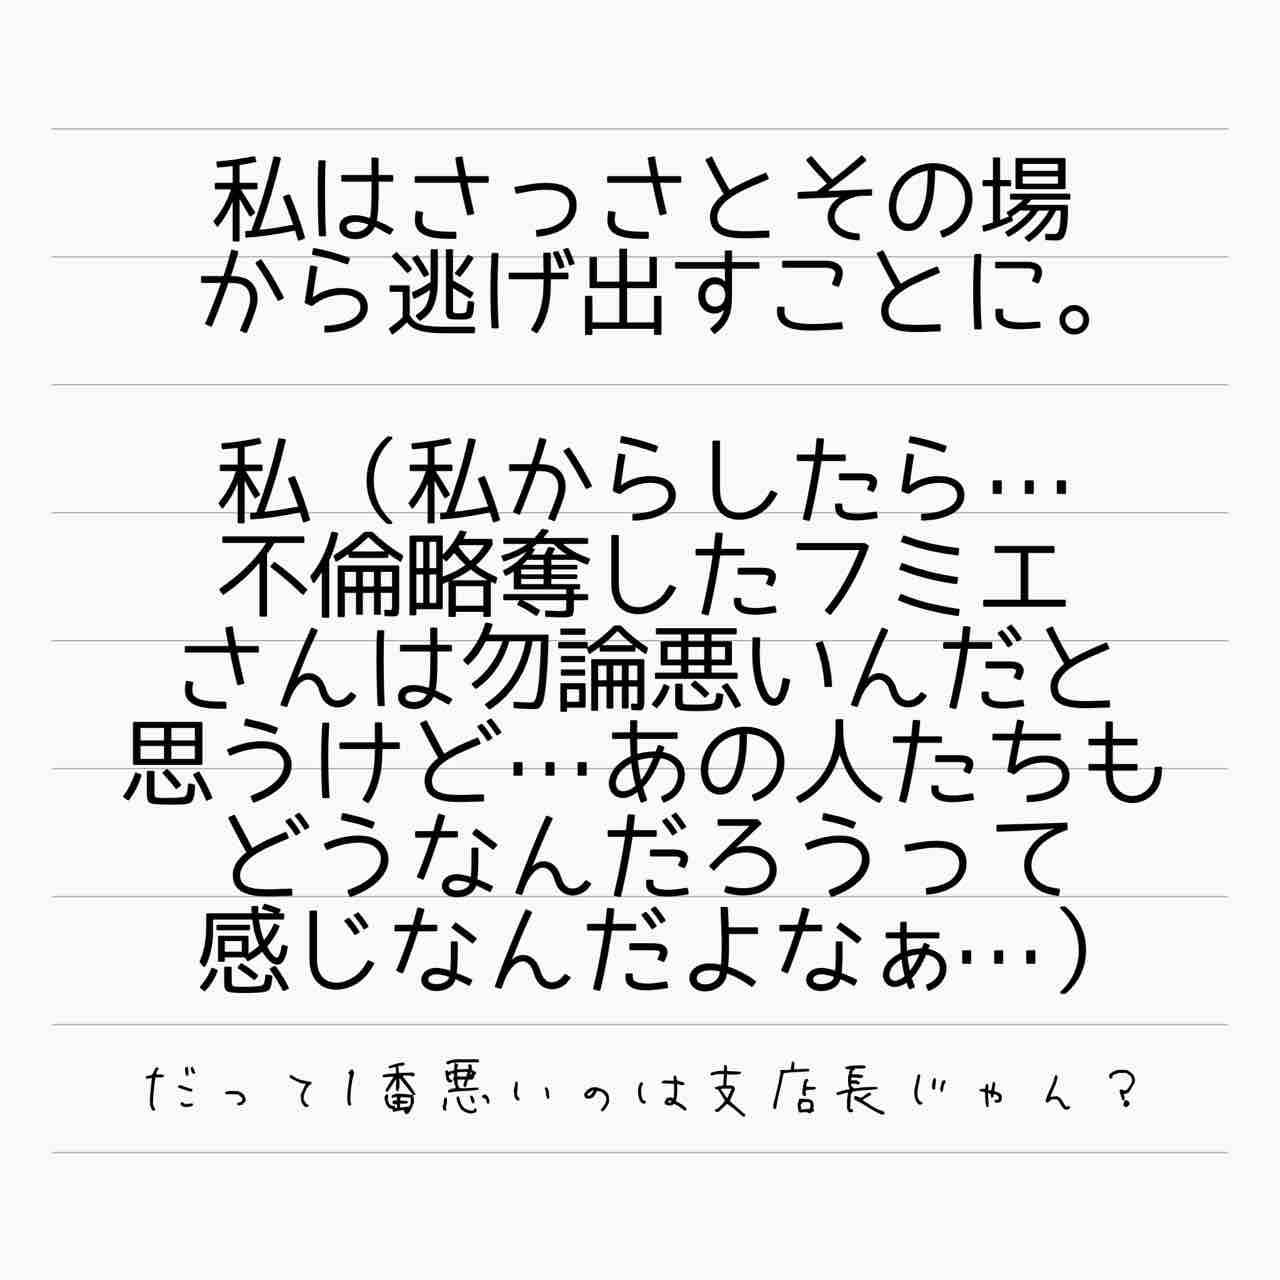 私はさっさとその場
から逃げ出すことに。
私（私からしたら…
不倫略奪したフミエ
さんは勿論悪いんだと
思うけど…あの人たちも
どうなんだろうって
感じなんだよなぁ…）
だって1番悪いのは支店長じゃん？